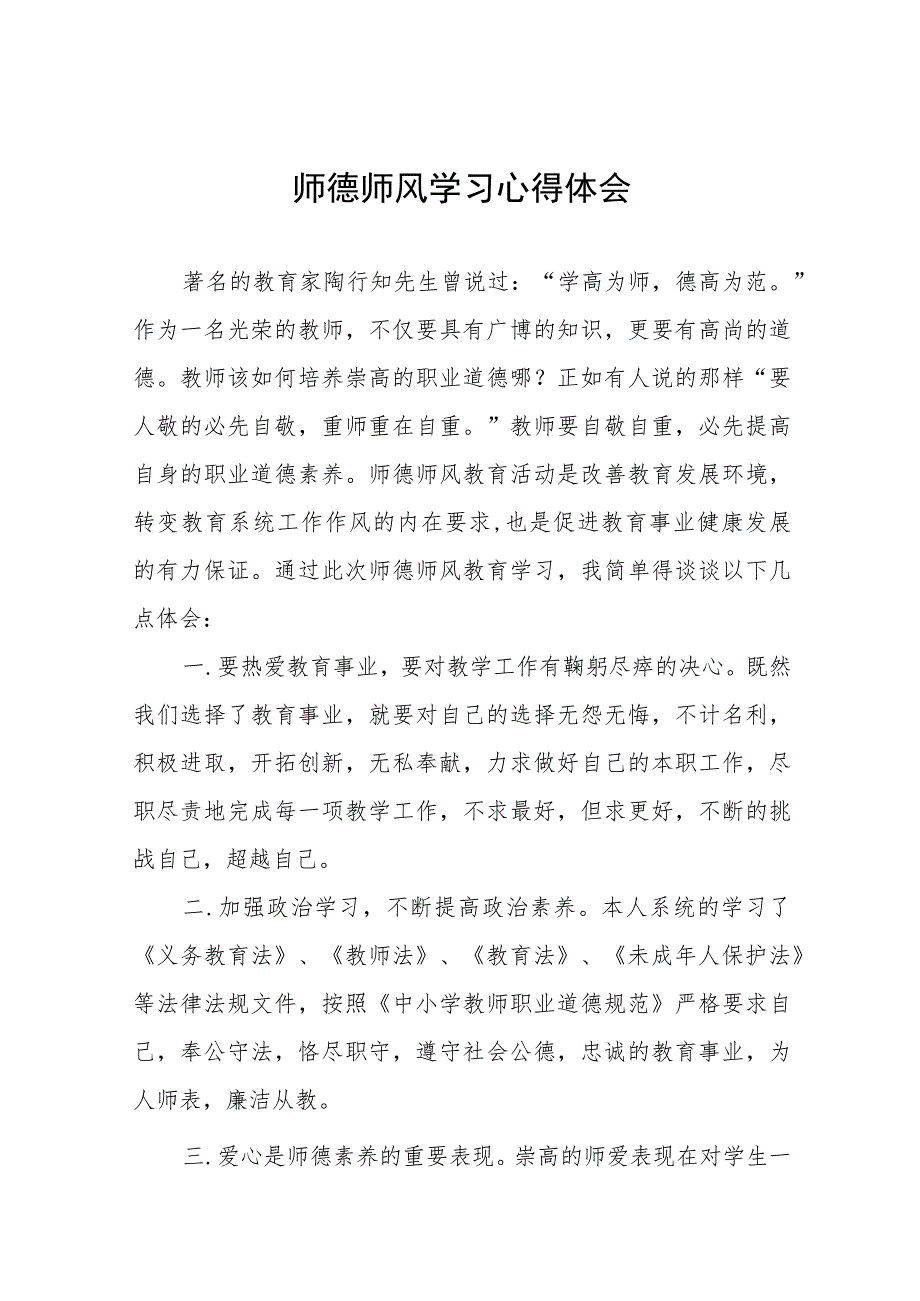 师德师风学习心得体会
著名的教育家陶行知先生曾说过：“学高为师，德高为范。”
作为一名光荣的教师，不仅要具有广博的知识，更要有高尚的道
德。教师该如何培养崇高的职业道德哪？正如有人说的那样“要
人敬的必先自敬，重师重在自重。”教师要自敬自重，必先提高
自身的职业道德素养。师德师风教育活动是改善教育发展环境，
转变教育系统工作作风的内在要求,也是促进教育事业健康发展
的有力保证。通过此次师德师风教育学习，我简单得谈谈以下几
点体会：
一.要热爱教育事业，要对教学工作有鞠躬尽瘁的决心。既然
我们选择了教育事业，就要对自己的选择无怨无悔，不计名利，
积极进取，开拓创新，无私奉献，力求做好自己的本职工作，尽
职尽责地完成每一项教学工作，不求最好，但求更好，不断的挑
战自己，超越自己。
二.加强政治学习，不断提高政治素养。本人系统的学习了
《义务教育法》、《教师法》、《教育法》、《未成年人保护法》
等法律法规文件，按照《中小学教师职业道德规范》严格要求自
己，奉公守法，恪尽职守，遵守社会公德，忠诚的教育事业，为
人师表，廉洁从教。
三.爱心是师德素养的重要表现。崇高的师爱表现在对学生一